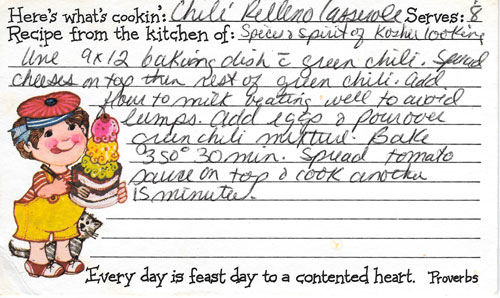 Here's what's cookin': Chili Relleno Casserole Serves: 8
Recipe from the kitchen of: Spice & Spirit of Kosher Cooking
Line 9x12 baking dish c̄ green chili. Spread
cheeses on top then rest of green chili. Add
flour to milk beating well to avoid
lumps. Add eggs & pour over
green chili mixture. Bake
@350° 30 min. Spread tomato
sauce on top & cook another
15 minutes.
Every day is feast day to a contented heart. Proverbs